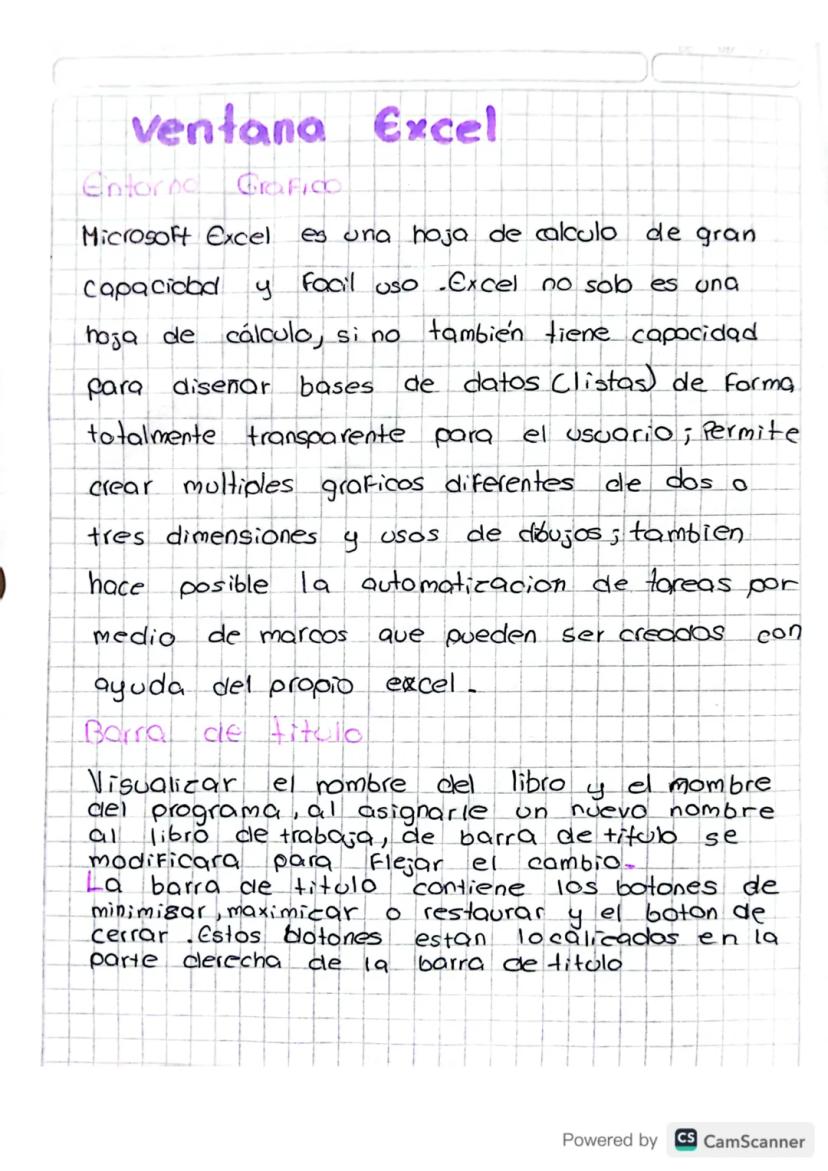 Ventana Excel
Entorno Grafico
Microsoft Excel es una hoja de calculo de gran
capacidad y facil uso . Excel no solo es una
hoja de cálculo, si no también tiene capacidad
para disenar bases de datos (listas) de forma
totalmente transparente para el usuario; Permite
crear multiples graficos diferentes de dos o
tres dimensiones y usos de dibujos; tambien
hace posible la automatizacion de tareas por
medio de marcos que pueden ser creados con
ayuda del propio excel.
Barra de titulo
Visualizar el nombre del libro y el mombre
del programa, al asignarle un nuevo nombre
al libro de trabaja, de barra de titulo se
modificara para flejar el cambio.
La barra de titulo contiene los botones de
minimisar, maximicar o restaurar y el boton de
cerrar . Estos blotones estan localicados en la
parte derecha de la barra de titulo
Powered by CS CamScanner